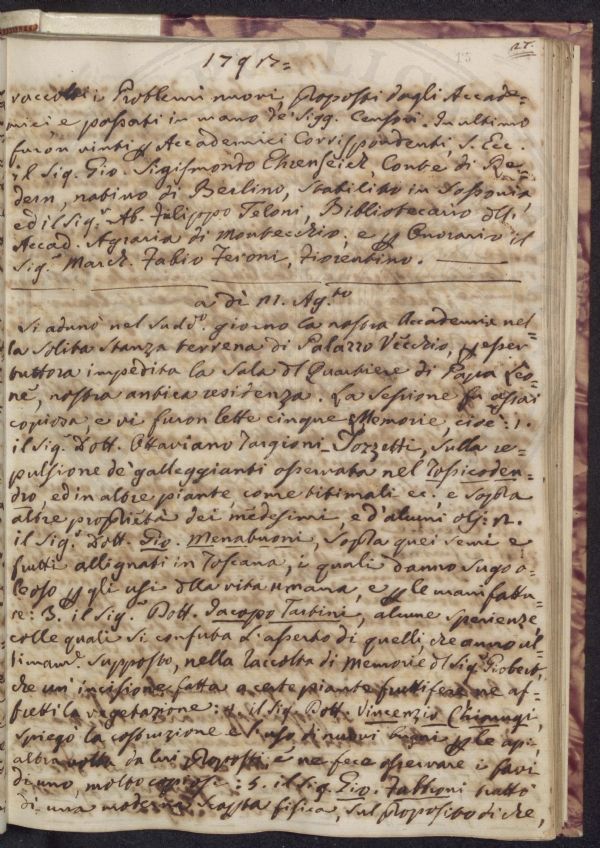 27.
13
1792=
raccolti i Problemi nuovi, proposti dagli Accade=
mici e passati in mano de' Sigg. Censori. In ultimo
furon vinti per Accademici Corrispondenti, S. Ecc.
il Sig. Gio. Sigismondo Ehrenreich, Conte di Re=
dern, nativo di Berlino, stabilito in Sassonia
ed il Sigr. Ab. Filippo Feloni, Bibliotecario dell'
Accad. Agraria di Montecchio; e per Onorario il
Sigr. March. Fabio Feroni, Fiorentino.
a dì 11. Agto
Si adunò nel suddo. giorno la nostra Accademia nel=
la solita stanza terrena di Palazzo Vecchio, per esser
tuttora impedita la Sala del Quartiere di Papa Leo=
ne, nostra antica residenza. La Sessione fu assai
copiosa, e vi furon lette cinque Memorie, cioè: 1.
il Sigr. Dott. Ottaviano Targioni=Tozzetti, sulla re=
pulsione de' galleggianti osservata nel Tossicoden=
dro, ed in altre piante, come titimali ec., e sopra
altre proprietà dei medesimi, e d'alcuni olj: 2.
il Sigr. Dott. Gio. Menabuoni, sopra quei semi e
frutti allignati in Toscana, i quali danno sugo o=
leoso per gli usi della vita umana, e per le manifattu=
re: 3. il Sigr. Dott. Jacopo Tartini, alcune sperienze
colle quali si confuta l'asserto di quelli, che anno ul=
timamte. supposto, nella raccolta di Memorie del Sigr.
che un'incisione fatta a certe piante fruttifere ne af=
fretti la vegetazione: 4. il Sig. Dott. Vincenzio Chiarugi,
spiegò la costruzione e l'uso di nuovi per le api,
altra volta da lui proposti, e ne fece osservare i favi
di uno, molto copiosi: 5. il Sig. Gio. Fabbroni trattò
di una moderna scoperta fisica, sul proposito di che,